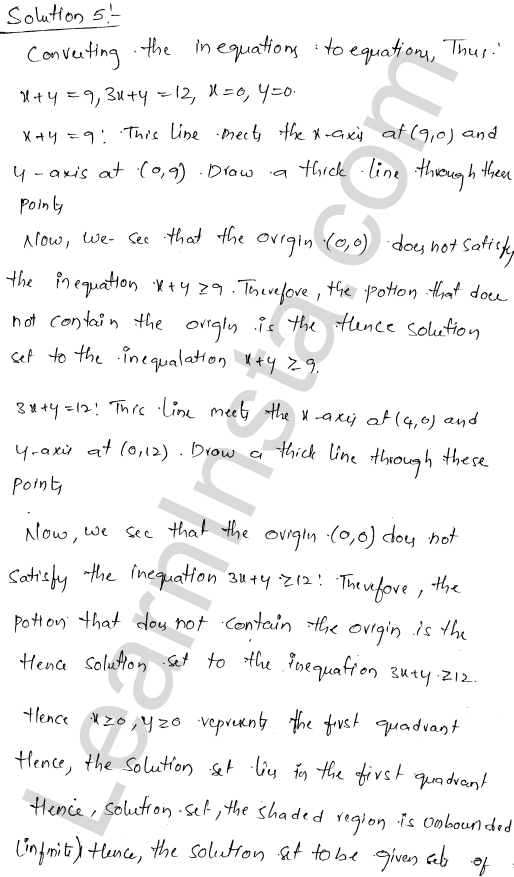 Solution 5:-
Converting the inequations to equations, Thus:
x+y=9, 3x+y=12, x=0, y=0.
x+y=9: This line meets the x-axis at (9,0) and
y-axis at (0,9). Draw a thick line through these
points
Now, we see that the origin (0,0) does not satisfy
the inequation x+y≥9. Therefore, the potion that does
not contain the origin is the Hence solution
set to the inequalation x+y≥9.
3x+y=12: This line meets the x-axis at (4,0) and
y-axis at (0,12). Draw a thick line through these
points
Now, we see that the origin (0,0) does not
satisfy the inequation 3x+y≥12: Therefore, the
potion that does not contain the origin is the
Hence solution set to the inequation 3x+y≥12.
Hence x≥0, y≥0 represents the first quadrant
Hence, the solution set lies in the first quadrant
Hence, solution set, the shaded region is unbounded
(infinite) Hence, the solution set to be given sets of
LearnInsta.com